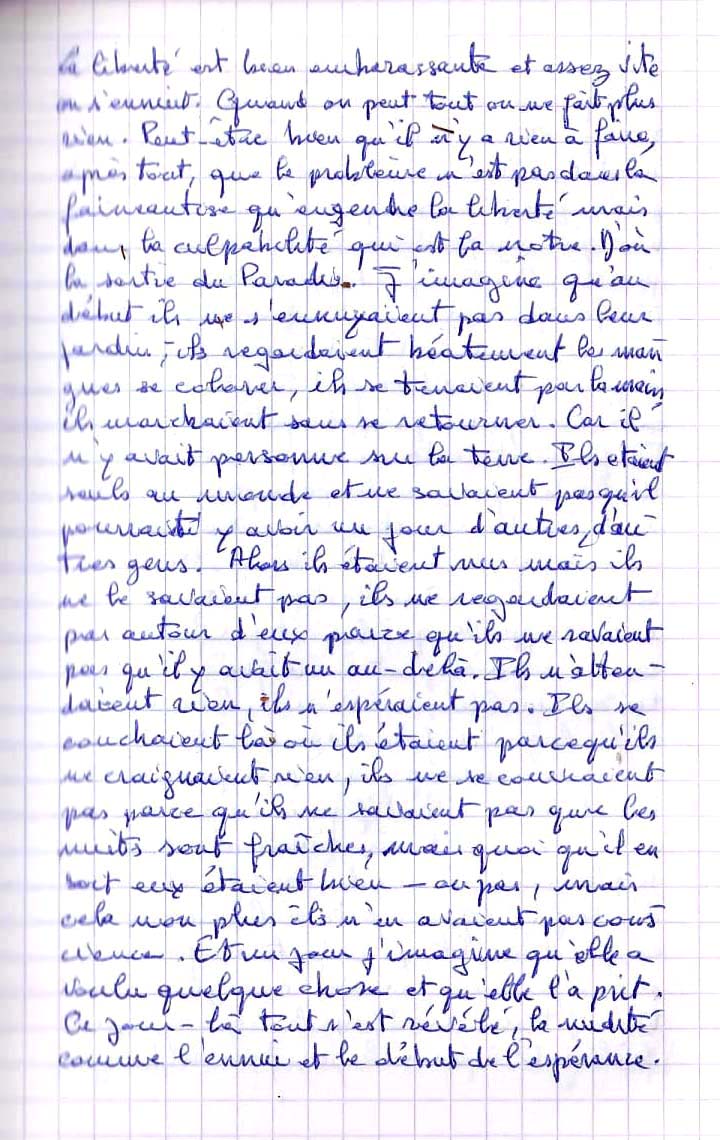 La liberté est bien embarassante et assez vite
on s'ennuit. Quand on peut tout on ne fait plus
rien. Peut-être bien qu'il n'y a rien à faire,
après tout, que le problème n'est pas dans la
fainéantise qu'engendre la liberté mais
dans la culpabilité qui est la notre. D'où
la sortie du Paradis. J'imagine qu'au
début ils ne s'ennuyaient pas dans leur
jardin, ils regardaient béatement les man
gues se colorer, ils se tenaient par la main,
ils marchaient sans se retourner. Car il
n'y avait personne sur la terre. Ils étaient
seuls au monde et ne savaient pas qu'il
pourrait y avoir un jour d'autres, d'au
tres gens. Alors ils étaient nus mais ils
ne le savaient pas, ils ne regardaient
pas autour d'eux parce qu'ils ne savaient
pas qu'il y avait un au-delà. Ils n'atten-
daient rien, ils n'espéraient pas. Ils se
couchaient là où ils étaient parcequ'ils
ne craignaient rien, ils ne se couvraient
pas parce qu'ils ne savaient pas que les
nuits sont fraîches, mais quoi qu'il en
soit eux étaient bien - ou pas, mais
cela non plus ils n'en avaient pas cons
cience. Et un jour j'imagine qu'elle a
voulu quelque chose et qu'elle l'a prit.
Ce jour-là tout s'est révélé, la nudité
comme l'ennui et le début de l'espérance.